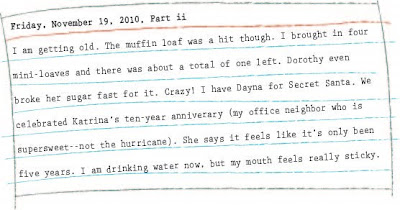 Friday, November 19, 2010, Part ii
I am getting old. The muffin loaf was a hit though. I brought in four
mini-loaves and there was about a total of one left. Dorothy even
broke her sugar fast for it. Crazy! I have Dayna for Secret Santa. We
celebrated Katrina's ten-year anniverary (my office neighbor who is
supersweet--not the hurricane). She says it feels like it's only been
five years. I am drinking water now, but my mouth feels really sticky.